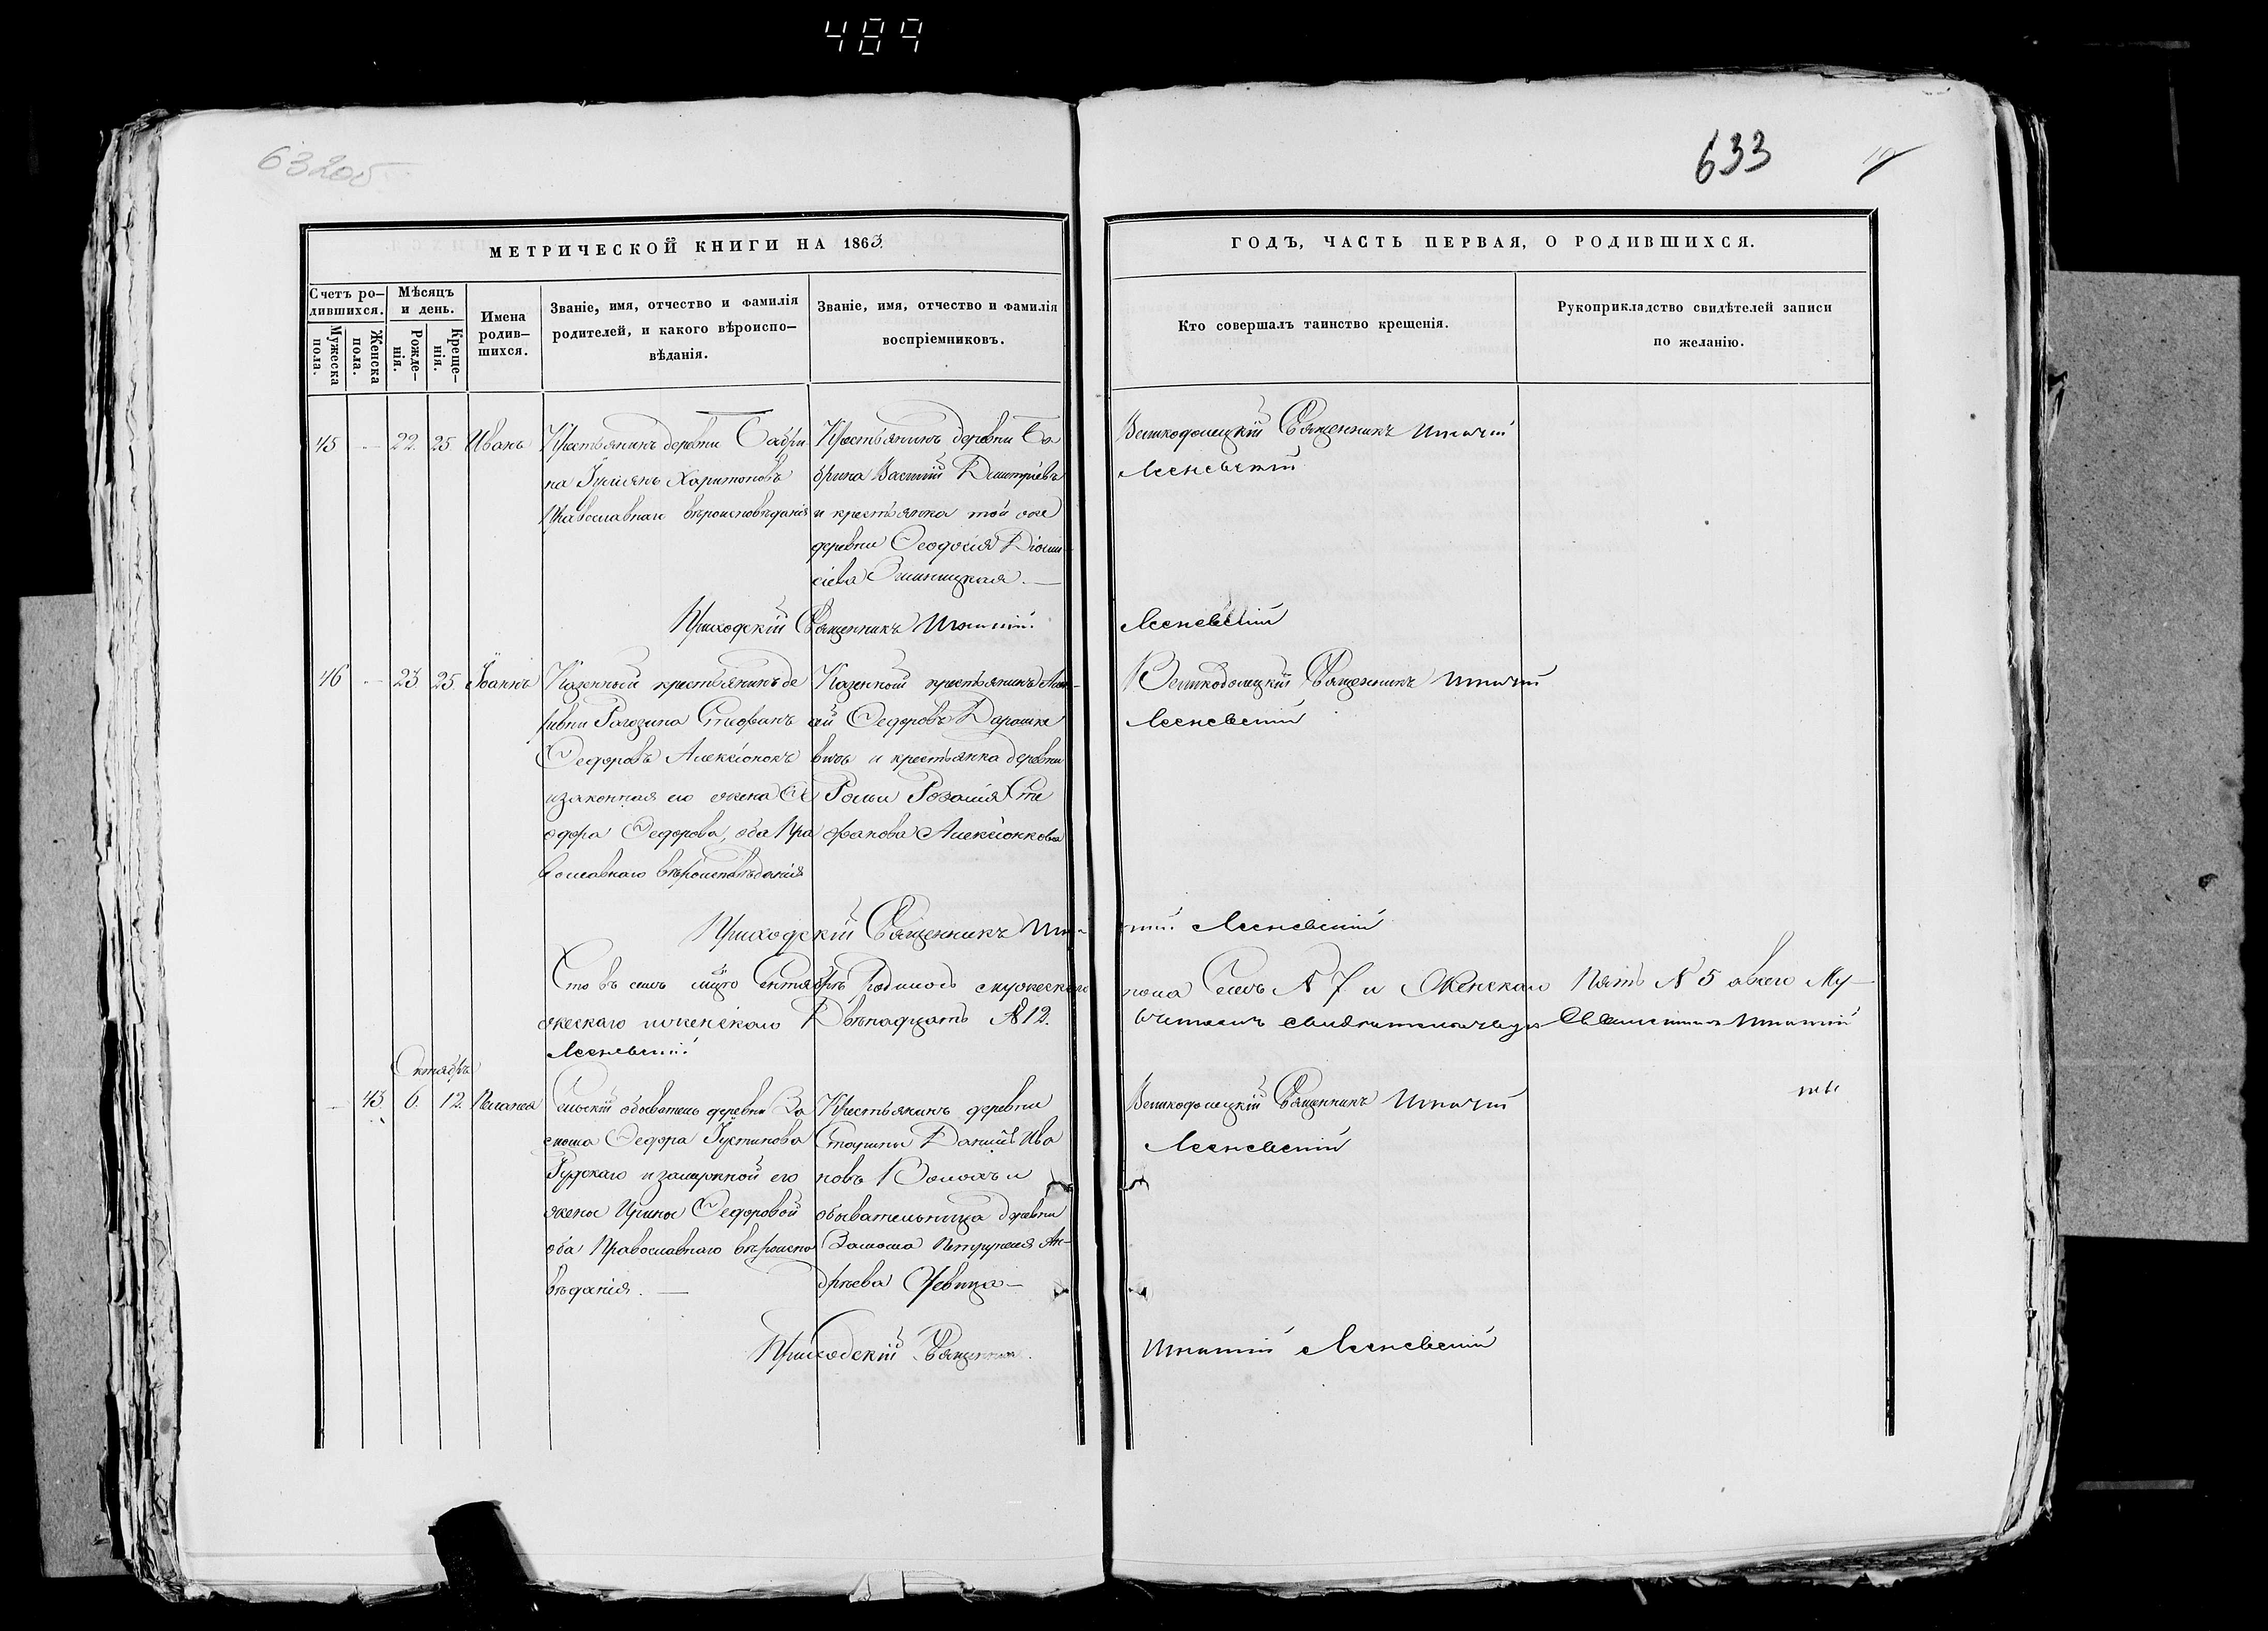 489
632об
633
МЕТРИЧЕСКОЙ КНИГИ НА 1863.
ГОДЪ, ЧАСТЬ ПЕРВАЯ, О РОДИВШИХСЯ.
Счетъ ро-
дившихся.
Мужеска
пола.
Женска
пола.
Мѣсяцъ
и день.
Рожде-
нія.
Креще-
нія.
Имена
родив-
шихся.
Званіе, имя, отчество и фамилія
родителей, и какого вѣроиспо-
вѣданія.
Званіе, имя, отчество и фамилія
воспріемниковъ.
Кто совершалъ таинство крещенія.
Рукоприкладство свидѣтелей записи
по желанію.
45 22. 25. Иванъ
Крестьянинъ деревни
на Харитоновъ
Православнаго вѣроисповѣданія
Крестьянинъ деревни
Василій Димитріевъ
и крестьянка той же
деревни Ѳеодосія Діони-
сіева
Великодолецкій Священникъ Игнатій
Лесневскій
Приходскій Священникъ Игнатій
Лесневскій
46 23. 25. Іоаннъ
Казенный крестьянинъ де
ревни Рагозина Стефанъ
Ѳедоровъ Алексіонокъ
и законная его жена Ѳе
одора Ѳедорова, оба Пра
вославнаго вѣроисповѣданія
Казенный крестьянинъ
Ѳедоровъ Дарошке
вичь и крестьянка деревни
Розалія Сте
фанова Алексіонкова
Великодолецкій Священникъ Игнатій
Лесневскій
Приходскій Священникъ Игна-
тій Лесневскій
Что въ семъ Сентябрѣ родилось мужескаго
пола Семь № 7 и Женскаго Пять № 5 а всего Му-
жескаго и женскаго Двѣнадцать № 12.
Священникъ Игнатій
Лесневскій
Октябрь
43 6. 12. Пелагея
Сельскій обыватель деревни За
моша Ѳедора Іустинова
Гудскаго и замужной его
жены Ирины Ѳедоровой
оба Православнаго вѣроиспо
вѣданія.
Крестьянинъ деревни
Даніилъ Ива
новъ Волохъ и
обывательница деревни
Замоша Петрунеля Ан-
дреева
Великодолецкій Священникъ Игнатій
Лесневскій
Приходскій Священникъ
Игнатій Лесневскій